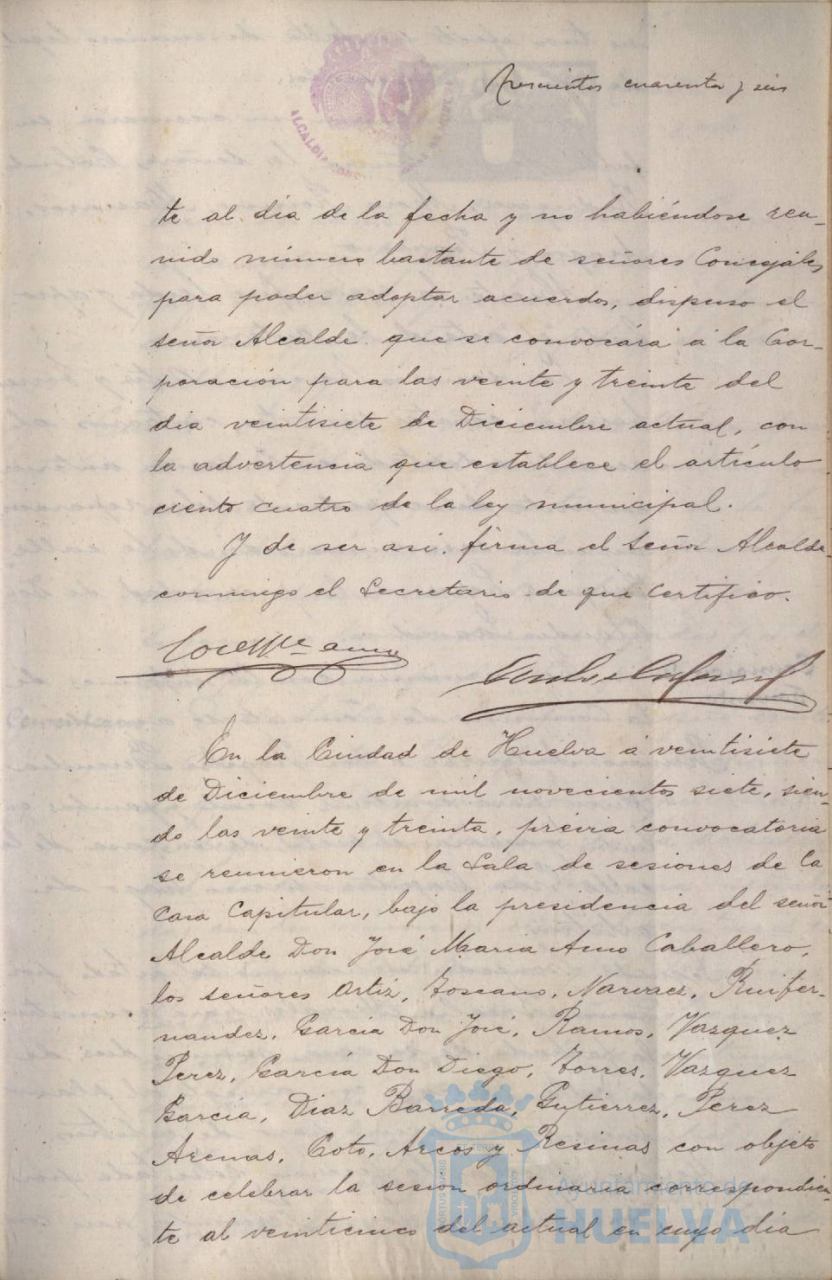 Trescientos cuarenta y seis
ALCALDIA CONS
te al dia de la fecha y no habiéndose reu-
nido número bastante de señores Concejales
para poder adoptar acuerdos, dispuso el
señor Alcalde que se convocára á la Cor-
poración para las veinte y treinta del
dia veintisiete de Diciembre actual, con
la advertencia que establece el artículo
ciento cuatro de la ley municipal.
Y de ser asi firma el señor Alcalde
conmigo el Secretario de que certifico.
José Mª Amo
En la Ciudad de Huelva á veintisiete
de Diciembre de mil novecientos siete, sien-
do las veinte y treinta, prévia convocatoria
se reunieron en la Sala de sesiones de la
Casa Capitular, bajo la presidencia del señor
Alcalde Don José Maria Amo Caballero,
los señores Ortiz, Toscano, Narvaez, Ruifer-
nandez, Garcia Don José, Ramos, Vazquez
Perez, García Don Diego, Torres, Vazquez
García, Diaz Barreda, Gutierrez, Perez
Arenas, Coto, Arcos y Resinas con objeto
de celebrar la sesión ordinaria correspondien-
te al veinticinco del actual en cuyo dia
Ayuntamiento de
HUELVA